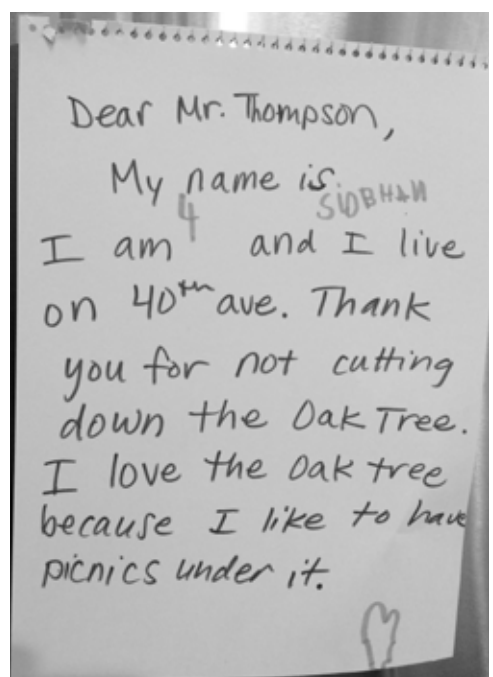 Dear Mr. Thompson,
My name is
SIOBHAN
I am 4 and I live
on 40th ave. Thank
you for not cutting
down the Oak Tree.
I love the Oak tree
because I like to have
picnics under it.